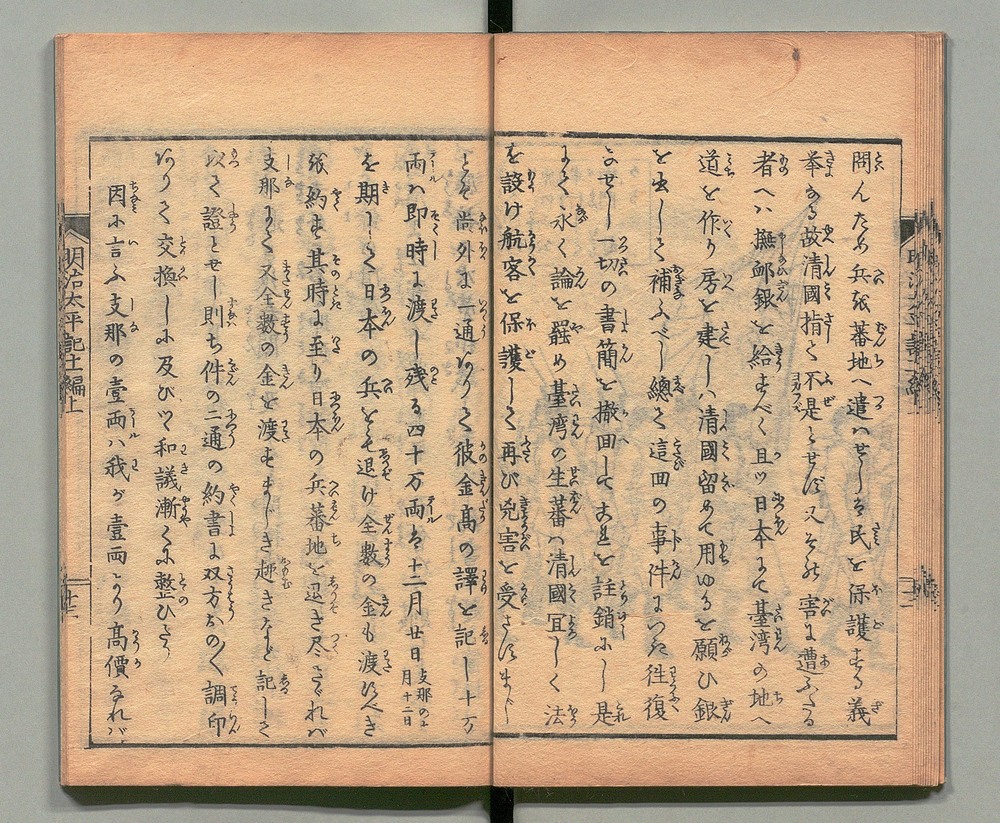 問んため兵を蕃地へ遣ハせしハ民を保護する義
挙なる故清國指て不是とせず又その害に遭ふたる
者へハ撫卹銀を給すべく且ツ日本にて臺湾の地へ
道を作り房を建しハ清國留めて用ゆるを願ひ銀
を出して補ふべし總て這回の事件につき徃復
なせし一切の書簡を撤回して共に註銷にし是
にて永く論を罷め臺湾の生蕃ハ清國宜しく法
を設け航客を保護して再び兇害を受さすまじ
とぞ尚外に一通ありて彼金髙の譯を記し十万
両ハ即時に渡し残る四十万両ハ十二月廿日支那の十一月十二日
を期して日本の兵をも退け全数の金も渡すべき
張約す其時に至り日本の兵蕃地を退き尽さゞれバ
支那にて又全数の金を渡すまじき趣きなど記して
以て證とせし則ち件の二通の約書に双方おの〳〵調印
ありて交換しに及びツ和議漸くに整ひたり
因に言ふ支那の壹両ハ我が壹両より髙價なれバ
明治太平記十一編上
十二